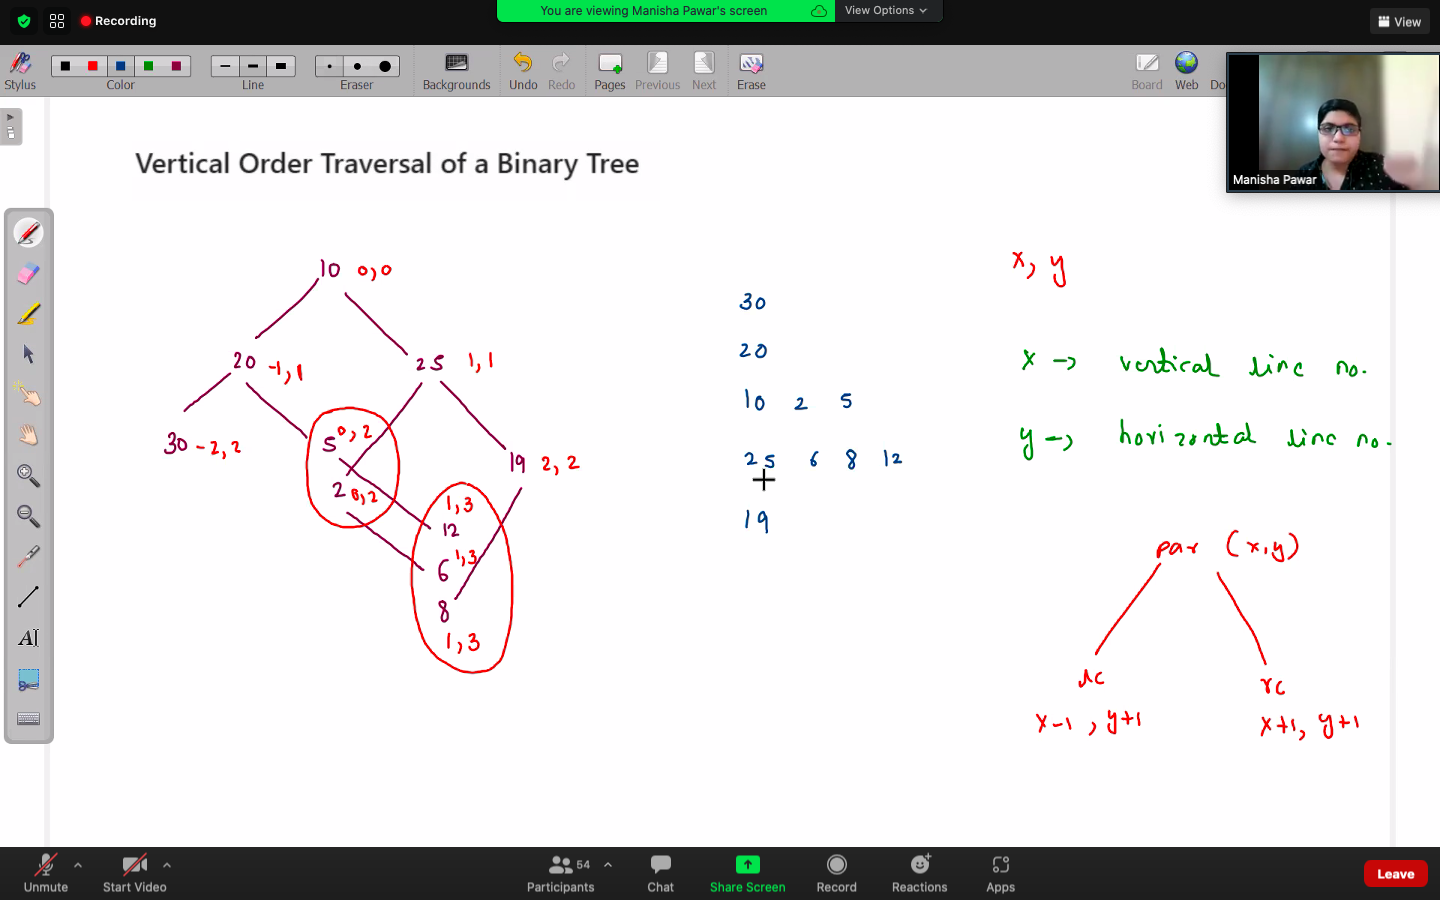 You are viewing Manisha Pawar's screen
View Options
Recording
View
Stylus
Color
Line
Eraser
Backgrounds
Undo
Redo
Pages
Previous
Next
Erase
Board
Web
Do
Manisha Pawar
Vertical Order Traversal of a Binary Tree
10 0,0
20 -1,1
25 1,1
30 -2,2
5 0,2
2 0,2
19 2,2
1,3
12
6 1,3
8
1,3
30
20
10 2 5
25 6 8 12
19
x, y
x -> vertical line no.
y -> horizontal line no.
par (x,y)
lc
rc
x-1, y+1
x+1, y+1
AI
Unmute
Start Video
Participants
54
Chat
Share Screen
Record
Reactions
Apps
Leave